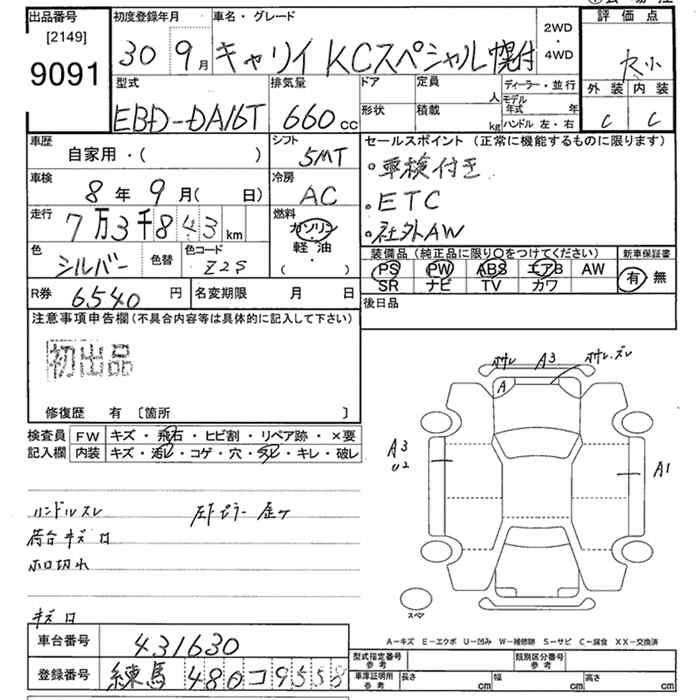 出品番号
[2149]
9091
初度登録年月
30 9月
車名・グレード
キャリイ KCスペシャル幌付
2WD
・
4WD
評価点
外装 内装
C C
型式
EBD-DA16T
排気量
660cc
ドア
定員
人
形状
積載
kg
ディーラー・並行
モデル年式 年
ハンドル 左・右
車歴
自家用・( )
シフト
5MT
車検
8年9月( 日)
冷房
AC
走行
7万3千843km
燃料
ガソリン
軽油
( ・ )
色
シルバー
色替
色コード
Z2S
R券
6540円
名変期限 月 日
セールスポイント (正常に機能するものに限ります)
・車検付き
・ETC
・社外AW
装備品 (純正品に限り〇をつけてください)
PS PW ABS エアB AW
SR ナビ TV カワ
新車保証書
有・無
後日品
注意事項申告欄(不具合内容等は具体的に記入して下さい)
初出品
修復歴 有 〔箇所 〕
検査員
記入欄
FW キズ・飛石・ヒビ割・リペア跡・×要
内装 キズ・汚レ・コゲ・穴・スレ・キレ・破レ
ハンドルスレ
荷台キズ ロ
ホロ切れ
キズ ロ
サレ A3 サレ.ズレ
A
A3
U2
A1
スペア
A−キズ E−エクボ U−凹み W−補修跡 S−サビ C−腐食 XX−交換済
車台番号
431630
登録番号
練馬 480 コ 9558
型式指定番号
参考
類別区分番号
参考
車庫証明用
参考
長さ cm
幅 cm
高さ cm